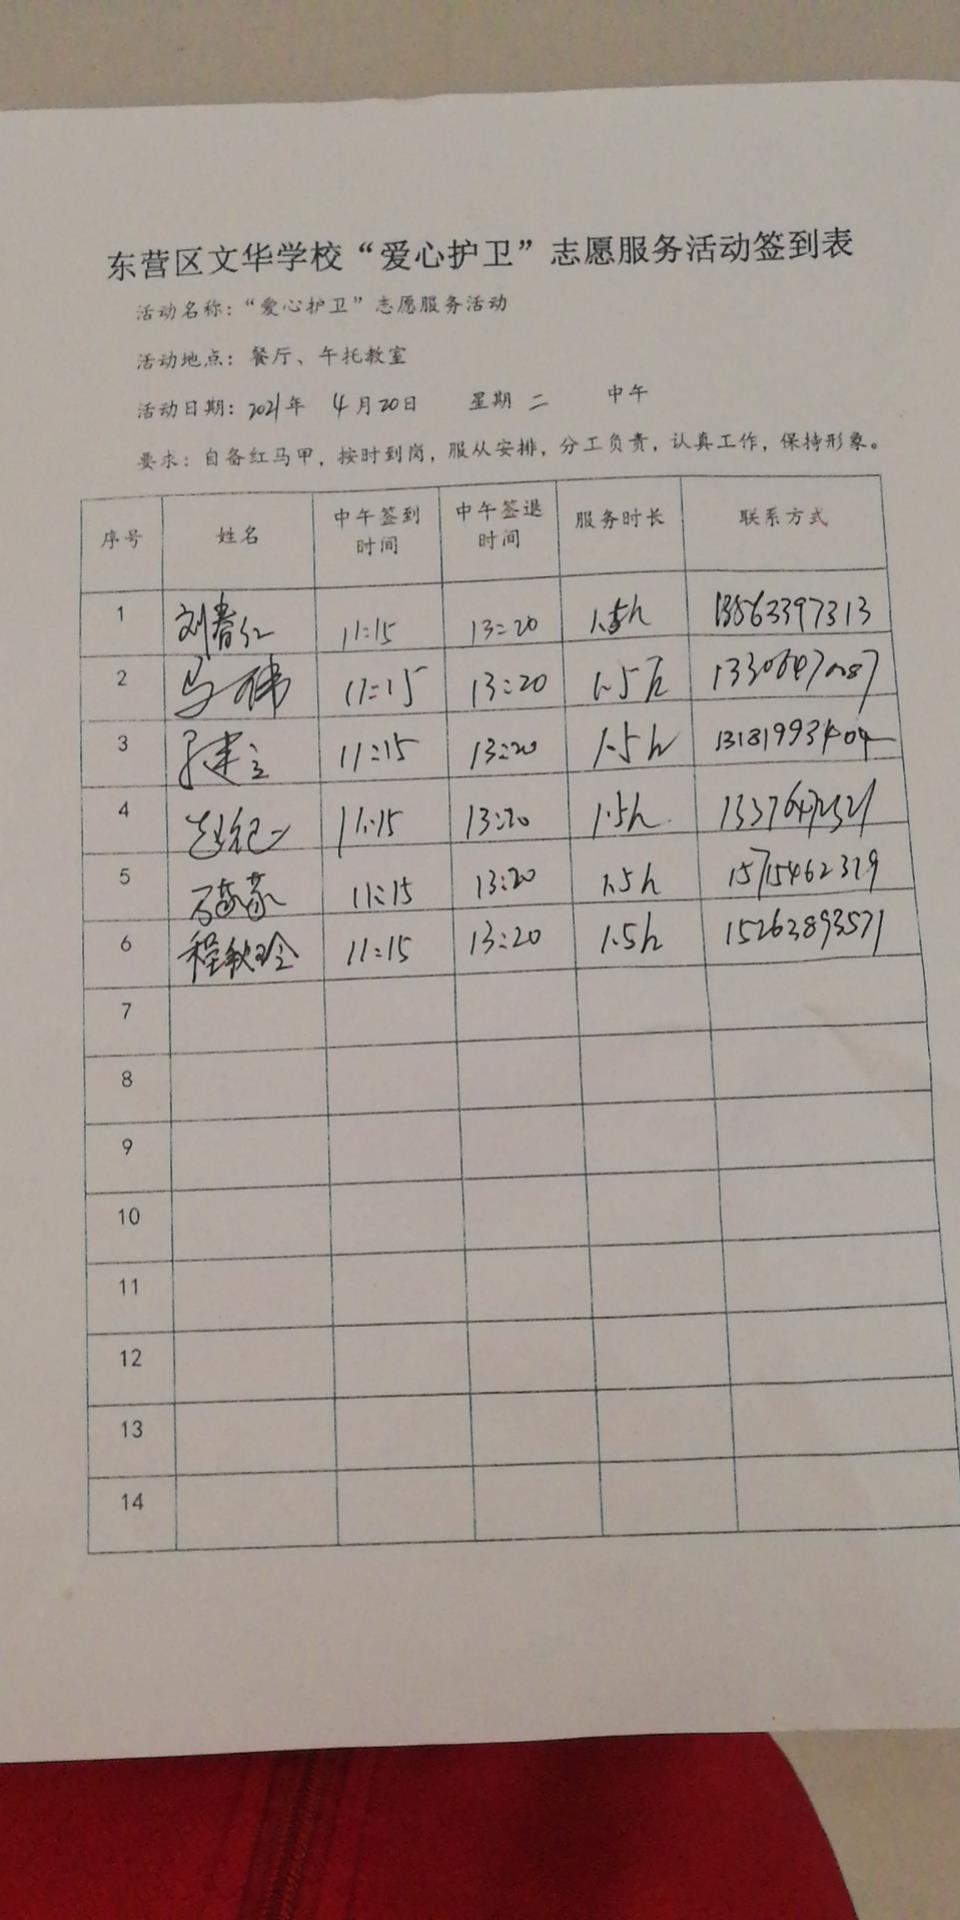 东营区文华学校“爱心护卫”志愿服务活动签到表
活动名称：“爱心护卫”志愿服务活动
活动地点：餐厅、午托教室
活动日期：2021年 4月20日 星期 二 中午
要求：自备红马甲，按时到岗，服从安排，分工负责，认真工作，保持形象。
序号 姓名 中午签到时间 中午签退时间 服务时长 联系方式
1 刘春仁 11:15 13:20 1.5h 13563397313
2 马伟 11:15 13:20 1.5h
3 11:15 13:20 1.5h 13181993404
4 11:15 13:20 1.5h
5 11:15 13:20 1.5h
6 程秋玲 11:15 13:20 1.5h 15263893571
7
8
9
10
11
12
13
14